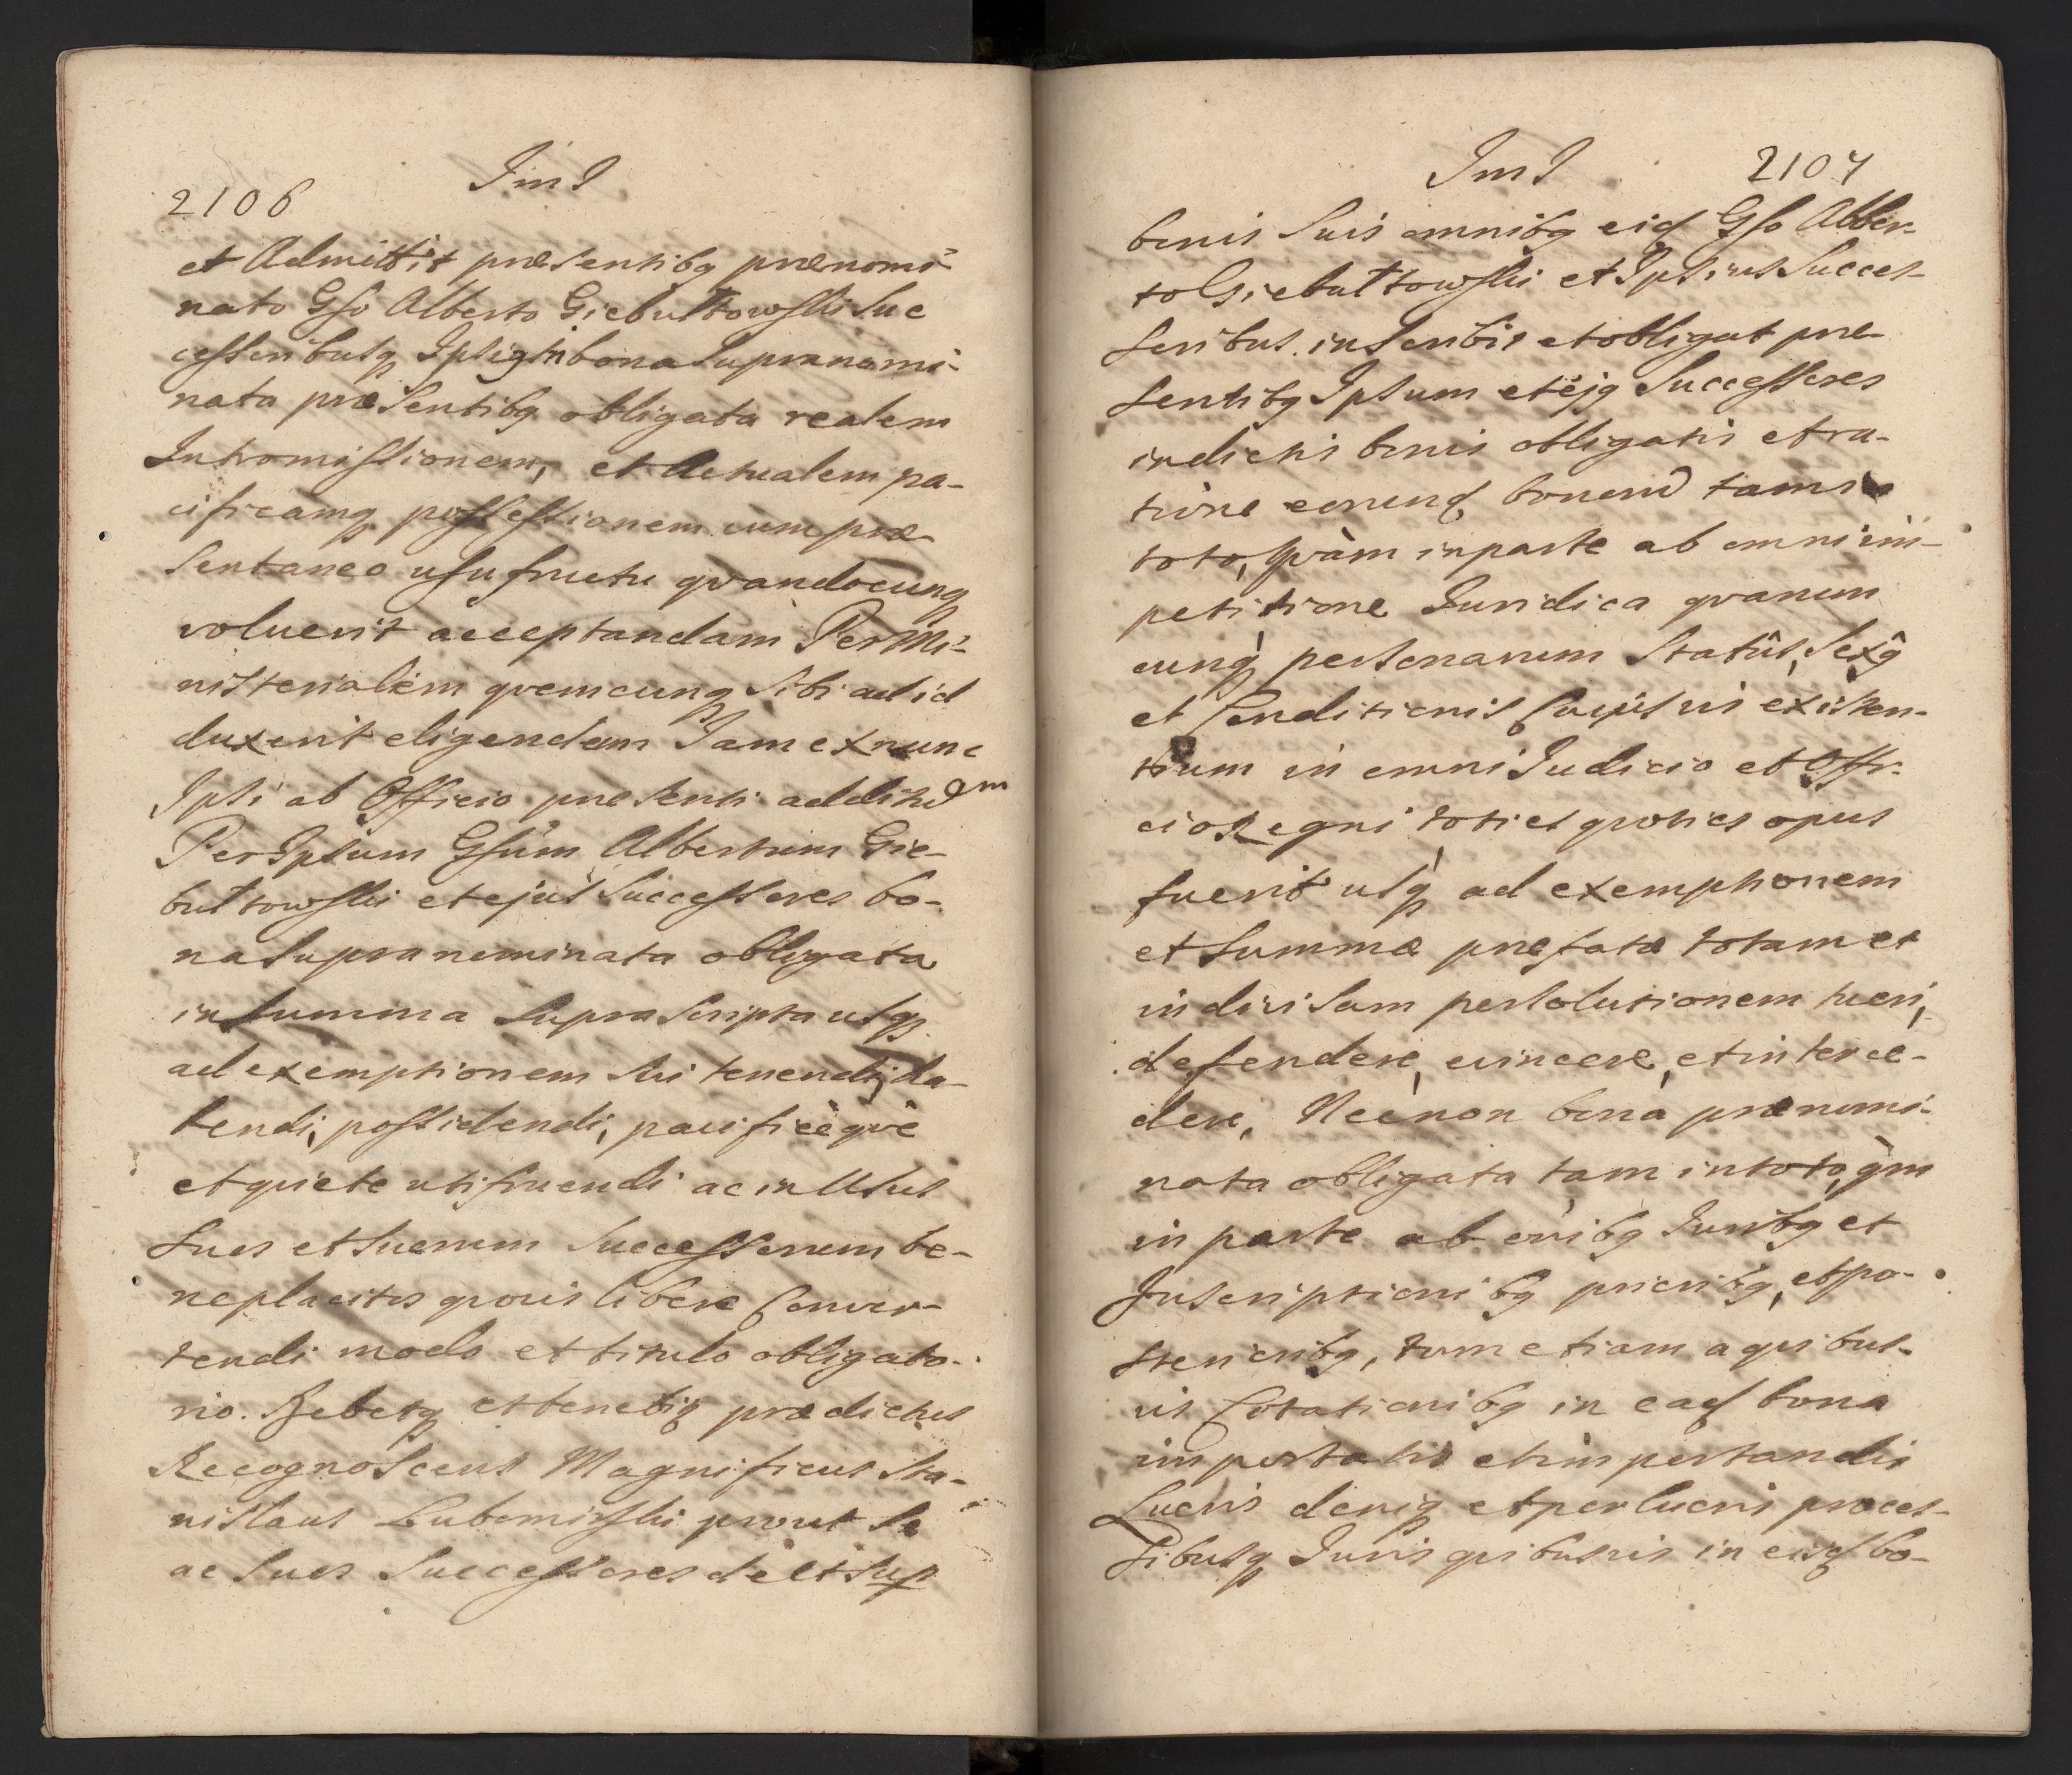 2106
JmJ
et Admittit præsentibꝫ prænomi-
nato Gso Alberto Giebułtowski Suc
cessoribusqꝫ Ipsiꝰ in bona Supranomi-
nata præsentibꝫ obligata realem
Intromissionem, et Actualem pa-
cificamqꝫ possessionem cum præ-
sentaneo usufructu qvandocunqꝫ
voluerit acceptandam Per Mi-
nisterialem qvemcunqꝫ Sibi ad id
duxerit eligendum Jam ex nunc
Ipsi ab Officio præsenti additũ
Per Ipsum Gsum Albertum Gie-
bułtowski et ejus Successores bo-
na Supranominata obligata
in Summa Suprascripta usqꝫ
ad exemptionem Sui tenendi, ha-
bendi, possidendi, pacificèqvè
et qviete utifruendi ac in Usus
Suos et Suorum Successorum be-
neplacitos qvovis libere Conver-
tendi modo et titulo obligato-
rio. Debetqꝫ et tenebiꝫ prædictus
Recognoscens Magnificus Sta-
nislaus Lubomirski prout Se
ac Suos Successores de et Sup
JmJ
2107
bonis Suis omnibꝫ eid Gso Alber-
to Giebułtowski et Ipsius Succes-
soribus inscribit et obligat præ-
sentibꝫ Ipsum et ejꝫ Successores
in dictis bonis obligatis et ra-
tione eorund bonorũ tam in
toto, qvàm in parte ab omni im-
petitione Juridica qvarum
cunqꝫ personarum Statûs, Sexꝫ
et Conditionis Cujusvis existen-
tium in omni Judicio et Offi-
cio Regni toties qvoties opus
fuerit usqꝫ ad exemptionem
et Summæ præfatæ totam et
indivisam persolutionem tueri,
defendere, evincere, et interce-
dere, Necnon bona prænomi-
nata obligata tam in toto, qm
in parte ab oñibꝫ Juribꝫ et
Inscriptionibꝫ prioribꝫ, et po-
sterioribꝫ, tum etiam a qvibus-
vis Cõtationibꝫ in ead bona
importatis et importandis
Lucris deniqꝫ et perlucris proces-
sibusqꝫ Juris qvibusvis in eisd bo-